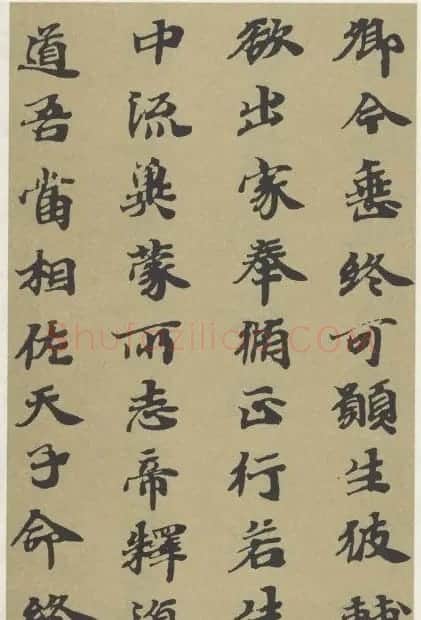 卿今垂終可願生彼
欲出家奉脩正行若生
中流冀蒙所志帝釋須
道吾當相佐天子命終
Shufaziliao.COM